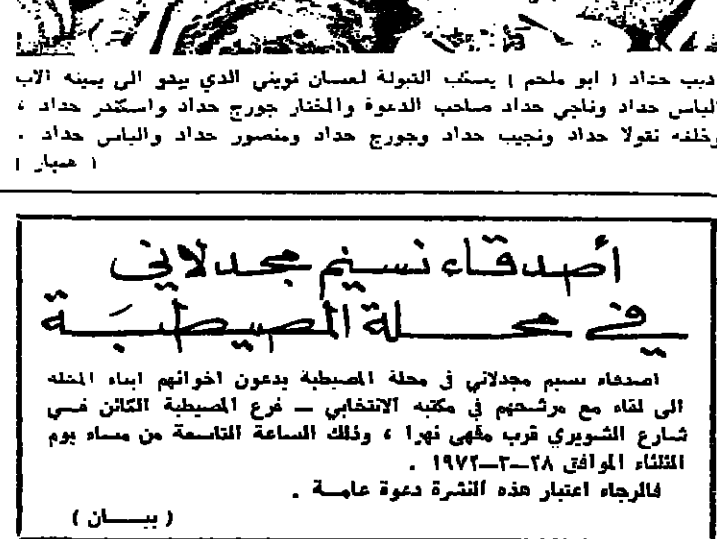 ديب حداد ( ابو ملحم ) يسكب التبولة لغسان تويني الذي يبدو الى يمينه الاب
الياس حداد وناجي حداد صاحب الدعوة والمختار جورج حداد واسكندر حداد ،
وخلفه نقولا حداد ونجيب حداد وجورج حداد ومنصور حداد والياس حداد .
( همبار )
أصدقاء نسيم مجدلاني
في محلة المصيطبة
اصدقاء نسيم مجدلاني في محلة المصيطبة يدعون اخوانهم ابناء المحلة
الى لقاء مع مرشحهم في مكتبه الانتخابي – فرع المصيطبة الكائن فـي
شارع الشويري قرب مقهى نهرا ، وذلك الساعة التاسعة من مساء يوم
الثلثاء الموافق ٢٨–٣–١٩٧٢ .
فالرجاء اعتبار هذه النشرة دعوة عامـة .
( بيــان )